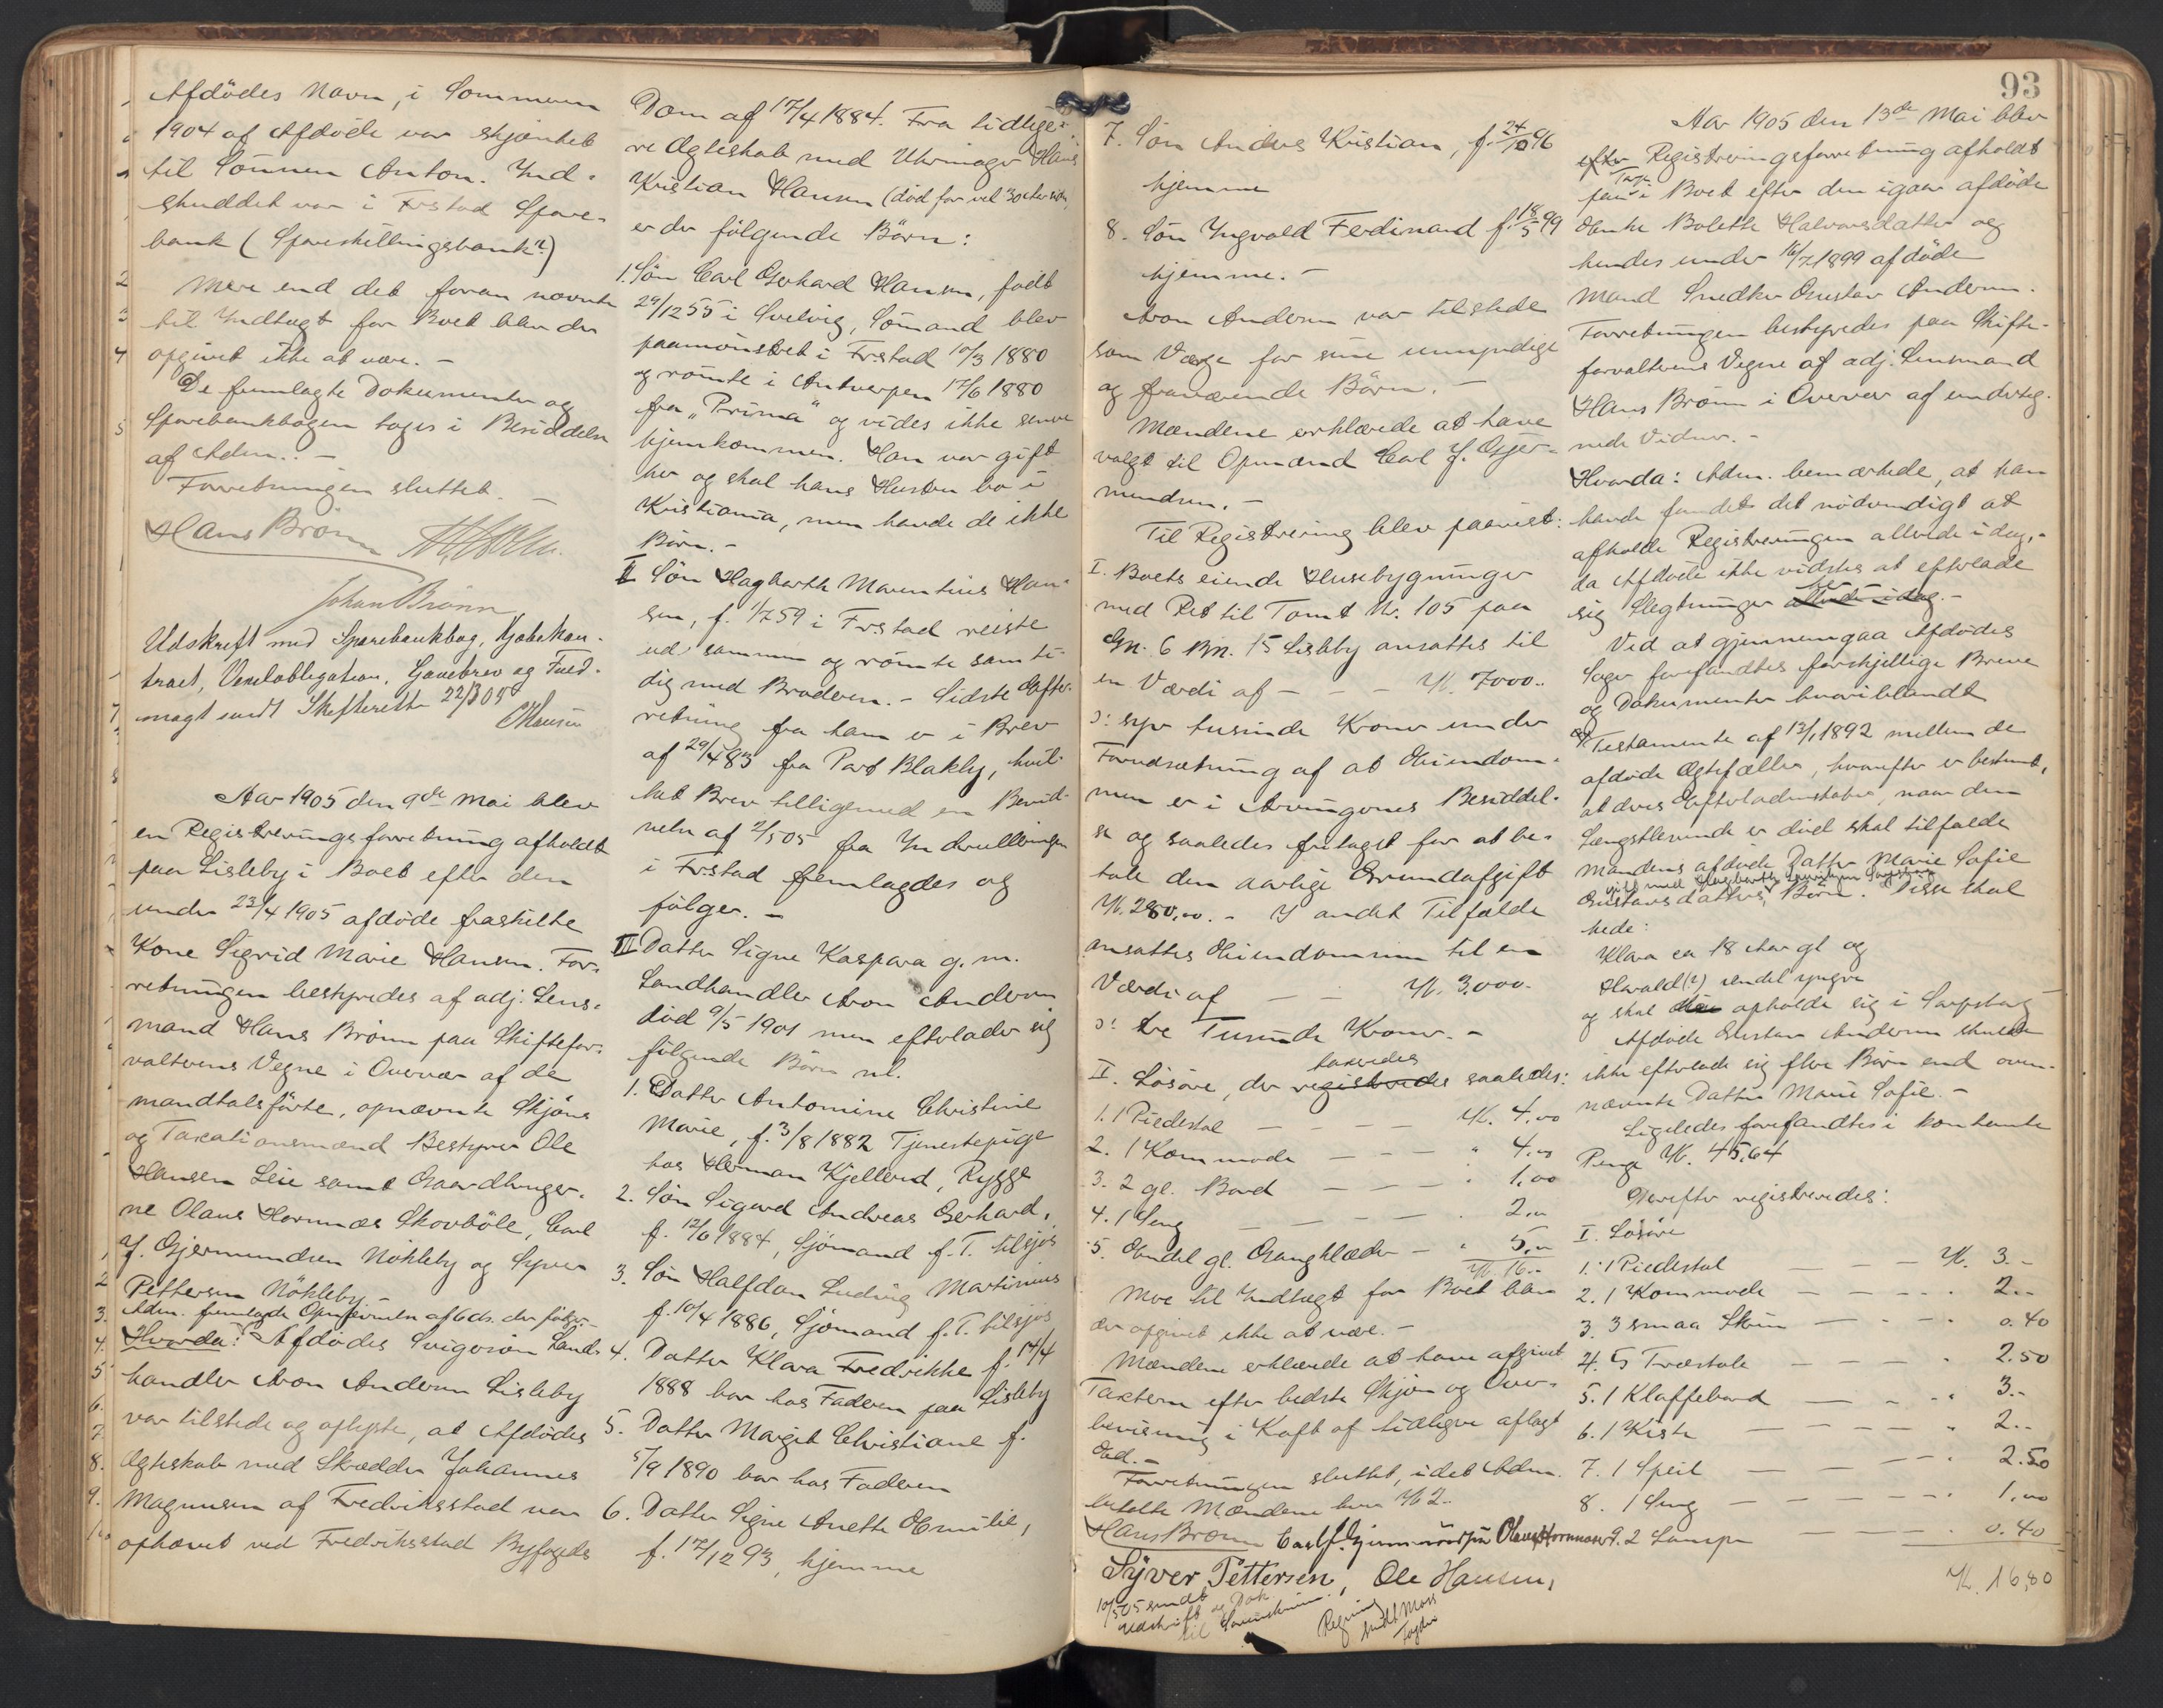 Afdödes Navn, i Sommeren
1904 af Afdöde var skjænket
til Sönnen Anton. Ind-
skuddet var i Frstad Spare-
bank (Spareskillingsbank?)
Mere end det foran nævnte
til Indtægt for Boet blev der
opgivet ikke at være. -
De fremlagte Dokumenter og
Sparebankbogen toges i Besiddelse
af Adm.. -
Forretningen sluttet. -
Hans Brönn
Johan Brönn
Udskrift med Sparebankbog, Kjøbekon-
tract, Vexelobligation, Gavebrev og Fuld-
magt sendt Skifteretten 22/3 05
CHansen
Aar 1905 den 9de Mai blev
en Registreringsforretning afholdt
paa Lisleby i Boet efter den
under 23/4 1905 afdöde fraskilte
Kone Sigrid Marie Hansen. For-
retningen bestyredes af adj. Lens-
mand Hans Brönn paa Skiftefor-
valterens Vegne i Overvær af de
mandtalsförte, opnævnte Skjöns
og Taxationsmænd Bestyrer Ole
Hansen Leie samt Gaardbruger-
ne Olaus Hornnæs Skovböle, Carl
J. Gjermundsen Nökleby og Syver
Pettersen Nökleby -
Adm. fremlagde Opnævnelse af 6 ds. der fölger. -
Hvorda: Afdödes Svigersön Land-
handler Aron Andersen Lisleby
var tilstede og oplyste, at Afdödes
Ægteskab med Skrædder Johannes
Magnusen af Fredriksstad var
ophævet ved Fredriksstad Byfogeds
Dom af 17/4 1884. Fra tidlige-
re Ægteskab med Uhrmager Hans
Kristian Hansen (död for vel 30 Aar siden)
er der fölgende Börn:
1. Sön Carl Gerhard Hansen, födt
29/12 55 i Svelvig, Sömand blev
paamönstret i Frstad 10/3 1880
og römte i Antwerpen 17/6 1880
fra "Prima" og vides ikke senere
hjemkommen. Han var gift
her og skal hans Hustru bo i
Kristiania, men havde de ikke
Börn. -
II Sön Hagbarth Marentius Han-
sen, f. 1/7 59 i Frstad reiste
ud sammen og römte samti-
dig med Broderen. - Sidste Efter-
retning fra ham er i Brev
af 29/4 83 fra Port Blakly, hvil-
ket Brev tilligemed en Bevid-
nelse af 2/5 05 fra Indrulleringen
i Frstad fremlagdes og
fölger. -
III Datter Signe Kaspara g. m.
Landhandler Aron Andersen
död 9/5 1901 men efterlader sig
fölgende Börn nl.
1. Datter Antomine Christine
Marie, f. 3/8 1882 Tjenestepige
hos Herman Kjellerud, Rygge
2. Sön Sigurd Andreas Gerhard,
f. 12/6 1884, Sjömand f. T. tilsjös
3. Sön Halfdan Ludvig Martinius
f. 10/4 1886, Sjömand f. T. tilsjös
4. Datter Klara Fredrikke f. 14/4
1888 bor hos Faderen paa Lisleby
5. Datter Margit Christiane f.
5/9 1890 bor hos Faderen
6. Datter Signe Anette Emilie,
f. 17/12 93, hjemme
93
7. Sön Anders Kristian, f. 24/10 96
hjemme
8. Sön Yngvald Ferdinand f. 18/5 99
hjemme. -
Aron Andersen var tilstede
som Værge for sine umyndige
og fraværende Börn. -
Mændene erklærede at have
valgt til Opmand Carl J. Gjer-
mundsen. -
Til Registrering blev paavist:
I. Boets eiende Husebygninger
med Ret til Tomt Nr. 105 paa
Gn. 6 Bn. 15 Lisleby ansattes til
en Værdi af - - - Kr. 7000..
ɔ: syv tusinde Kroner under
Forudsætning af at Eiendom-
men er i Arvingernes Besiddel-
se og saaledes fritaget for at be-
tale den aarlige Grundafgift
Kr. 280,00. - I andet Tilfælde
ansattes Eiendommen til en
Værdi af - - Kr. 3.000.
ɔ: tre Tusinde Kroner. -
taxeredes
II. Lösöre, der registreredes saaledes:
1. 1 Piedestal - - - - Kr. 4,00
2. 1 Kommode - - - " 4,00
3. 2 gl. Bord - - - " 1,00
4. 1 Seng - - - - " 2,00
5. Endel gl. Gangklæder - " 5,00
Kr. 16..
Mere til Indtægt for Boet blev
der opgivet ikke at være. -
Mændene erklærede at have afgivet
Taxterne efter bedste Skjön og Over-
bevisning i Kraft af tidligere aflagt
Ed. -
Forretningen sluttet, idet Adm.
betalte Mændene hver Kr 2..
Hans Brönn Carl J. Gjermundsen Olaus Hornnæs
Syver Pettersen, Ole Hansen,
10/5 05 sendt
Udskrift og Dok.
til Sorenskriveren.
Regning
sendt Moss
Fogderi
Aar 1905 den 13de Mai blev
efter Registreringsforretning afholdt
paa i Boet efter den igaar afdöde
Enke Bolette Halvorsdatter og
hendes under 16/7 1899 afdöde
Mand Snedker Gustav Andersen.
Forretningen bestyredes paa Skifte-
forvalterens Vegne af adj. Lensmand
Hans Brönn i Overvær af underteg-
nede Vidner. -
Hvorda: Adm. bemærkede, at han
havde fundet det nödvendigt at
afholde Registreringen allerede idag, -
da Afdöde ikke vidstes at efterlade
sig Slegtninger her -
Ved at gjennemgaa Afdödes
Sager forefandtes forskjellige Breve
og Dokumenter hvoriblandt
Testamente af 13/1 1892 mellem de
afdöde Ægtefæller, hvorefter er bestemt,
at deres Efterladenskaber, naar den
Længstlevende er död skal tilfalde
Mandens afdöde Datter Marie Sofie
gift med Hagbarth Lauritsen Sarpsborg
Gustavsdatters Börn. Disse skal
hede:
Klara ca 18 Aar gl og
Harald (?) endel yngre
og skal opholde sig i Sarpsborg
Afdöde Gustav Andersen skulde
ikke efterlade sig flere Börn end oven-
nævnte Datter Marie Sofie. -
Ligeledes forefandtes i kontante
Penge Kr. 45,64
Derefter registreredes:
I. Lösöre
1. 1 Piedestal - - - Kr. 3.-
2. 1 Kommode - - - - 2..
3. 3 smaa Skrin - - - - 0.40
4. 5 Træstole - - - - 2.50
5. 1 Klaffebord - - - " 3.-
6. 1 Kiste - - - - " 2..
7. 1 Speil - - - - - 2.50
8. 1 Seng - - - - - 1,00
9. 2 Lamper - - - - 0.40
Kr. 16,80